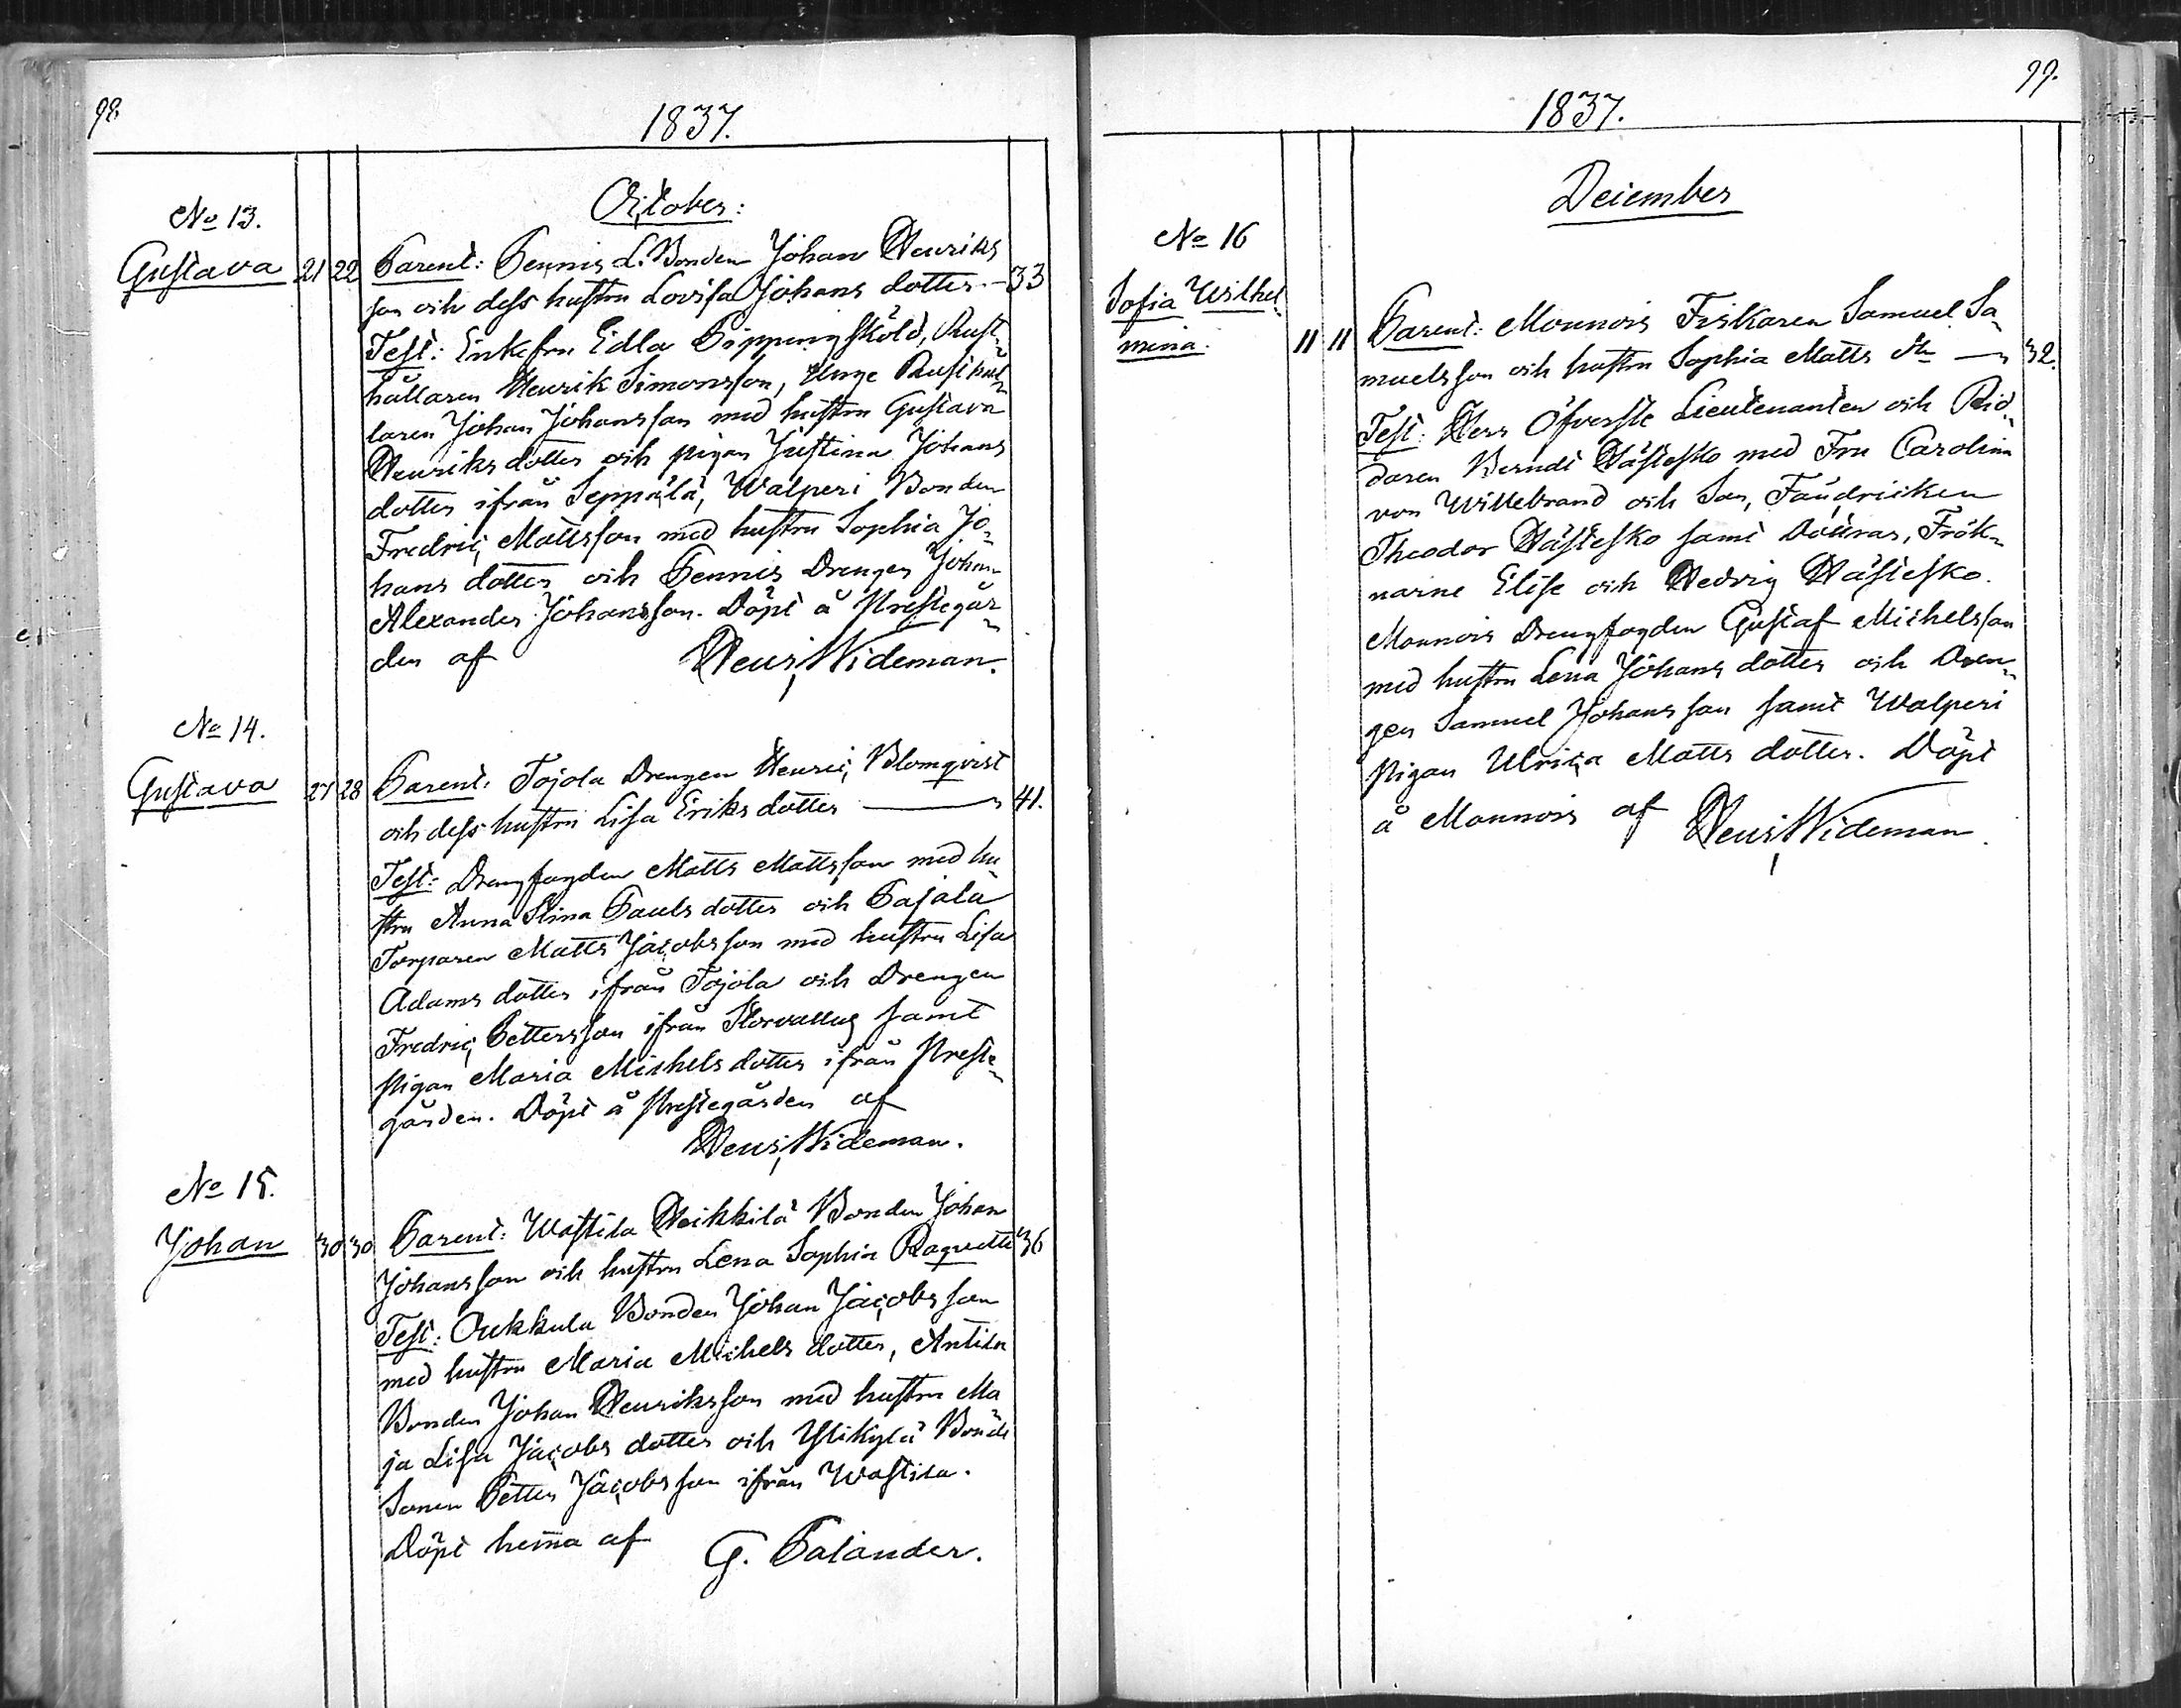 98.
1837.
October:
No 13.
Gustava 21 22 Parent: Pennis L. Bonden Johan Henriks
son och dess hustru Lovisa Johans dotter — 33
Test: Enkefru Edla Pippingsköld, Rust-
hållaren Henrik Simonsson, Unge Rusthål-
laren Johan Johansson med hustru Gustava
Henriks dotter och pigan Justina Johans
dotter ifrån Seppälä, Walperi Bonden
Fredric Mattsson med hustru Sophia Jo-
hans dotter och Pennis Drengen Johan
Alexander Johansson. Döpt å Prestegår-
den af Henr. Wideman.
No 14.
Gustava 27 28 Parent. Tojola Drengen Henric Blomqvist
och dess hustru Lisa Eriks dotter — 41.
Test: Drengfogden Matts Mattsson med hu-
stru Anna Stina Pauls dotter och Pajala
Torparen Matts Jacobsson med hustru Lisa
Adams dotter ifrån Tojola och Drengen
Fredric Pettersson ifrån Storvallus samt
Pigan Maria Michels dotter ifrån Preste-
gården. Döpt å Prestegården af
Henr. Wideman.
No 15.
Johan 30 30 Parent: Wastila Heikkilä Bonden Johan
Johansson och hustru Lena Sophia Raquette 36
Test: Oukkula Bonden Johan Jacobsson
med hustru Maria Michels dotter, Antila
Bonden Johan Henriksson med hustru Ma
ja Lisa Jacobs dotter och Ylikylä Bonde
Sonen Petter Jacobsson ifrån Wastila.
Döpt hemma af G. Palander.
99.
1837.
December
No 16
Sofia Wilhel-
mina. 11 11 Parent: Monnois Fiskaren Samuel Sa-
muelsson och hustru Sophia Matts dr — 32.
Test: Herr Öfverste Lieutenanten och Rid-
daren Berndt Hästesko med Fru Carolina
von Willebrand och Son, Fändricken
Theodor Hästesko samt Döttrar, Frök-
narne Elise och Hedvig Hästesko.
Monnois Drengfogden Gustaf Michelsson
med hustru Lena Johans dotter och Dren-
gen Samuel Johansson samt Walperi
Pigan Ulrica Matts dotter. Döpt
å Monnois af Henr. Wideman.